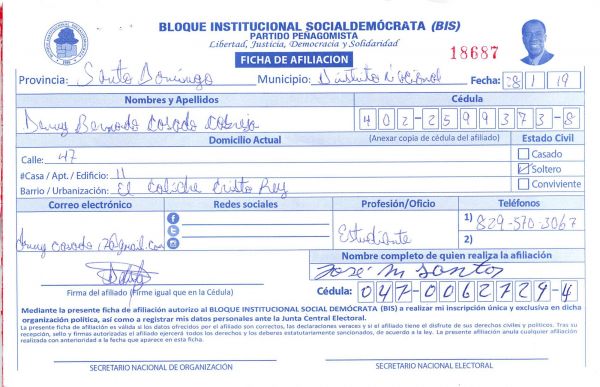 BLOQUE INSTITUCIONAL SOCIALDEMÓCRATA (BIS)
PARTIDO PEÑAGOMISTA
Libertad, Justicia, Democracia y Solidaridad
18687
FICHA DE AFILIACION
Provincia: Santo Domingo Municipio: Distrito Nacional Fecha: 28 1 19
Nombres y Apellidos Cédula
Bernardo Casado 402-2599373-8
Domicilio Actual (Anexar copia de cédula del afiliado) Estado Civil
Calle: 47 Casado
#Casa / Apt. / Edificio: 11 Soltero
Barrio / Urbanización: El Caliche Cristo Rey Conviviente
Correo electrónico Redes sociales Profesión/Oficio Teléfonos
1) 829-570-3067
casado17@gmail.com Estudiante 2)
Nombre completo de quien realiza la afiliación
José M Santos
Firma del afiliado (Firme igual que en la Cédula) Cédula: 047-0062729-4
Mediante la presente ficha de afiliación autorizo al BLOQUE INSTITUCIONAL SOCIAL DEMÓCRATA (BIS) a realizar mi inscripción única y exclusiva en dicha
organización política, así como a registrar mis datos personales ante la Junta Central Electoral.
La presente ficha de afiliación es válida si los datos ofrecidos por el afiliado son correctos, las declaraciones veraces y si el afiliado tiene el disfrute de sus derechos civiles y políticos. Tras su
recepción, sello y firmas autorizadas el afiliado ejercerá todos los derechos y los deberes estatutariamente sancionados, de acuerdo a la ley. La presente afiliación anula cualquier afiliación
realizada con anterioridad a la fecha que aparece en esta ficha.
SECRETARIO NACIONAL DE ORGANIZACIÓN SECRETARIO NACIONAL ELECTORAL